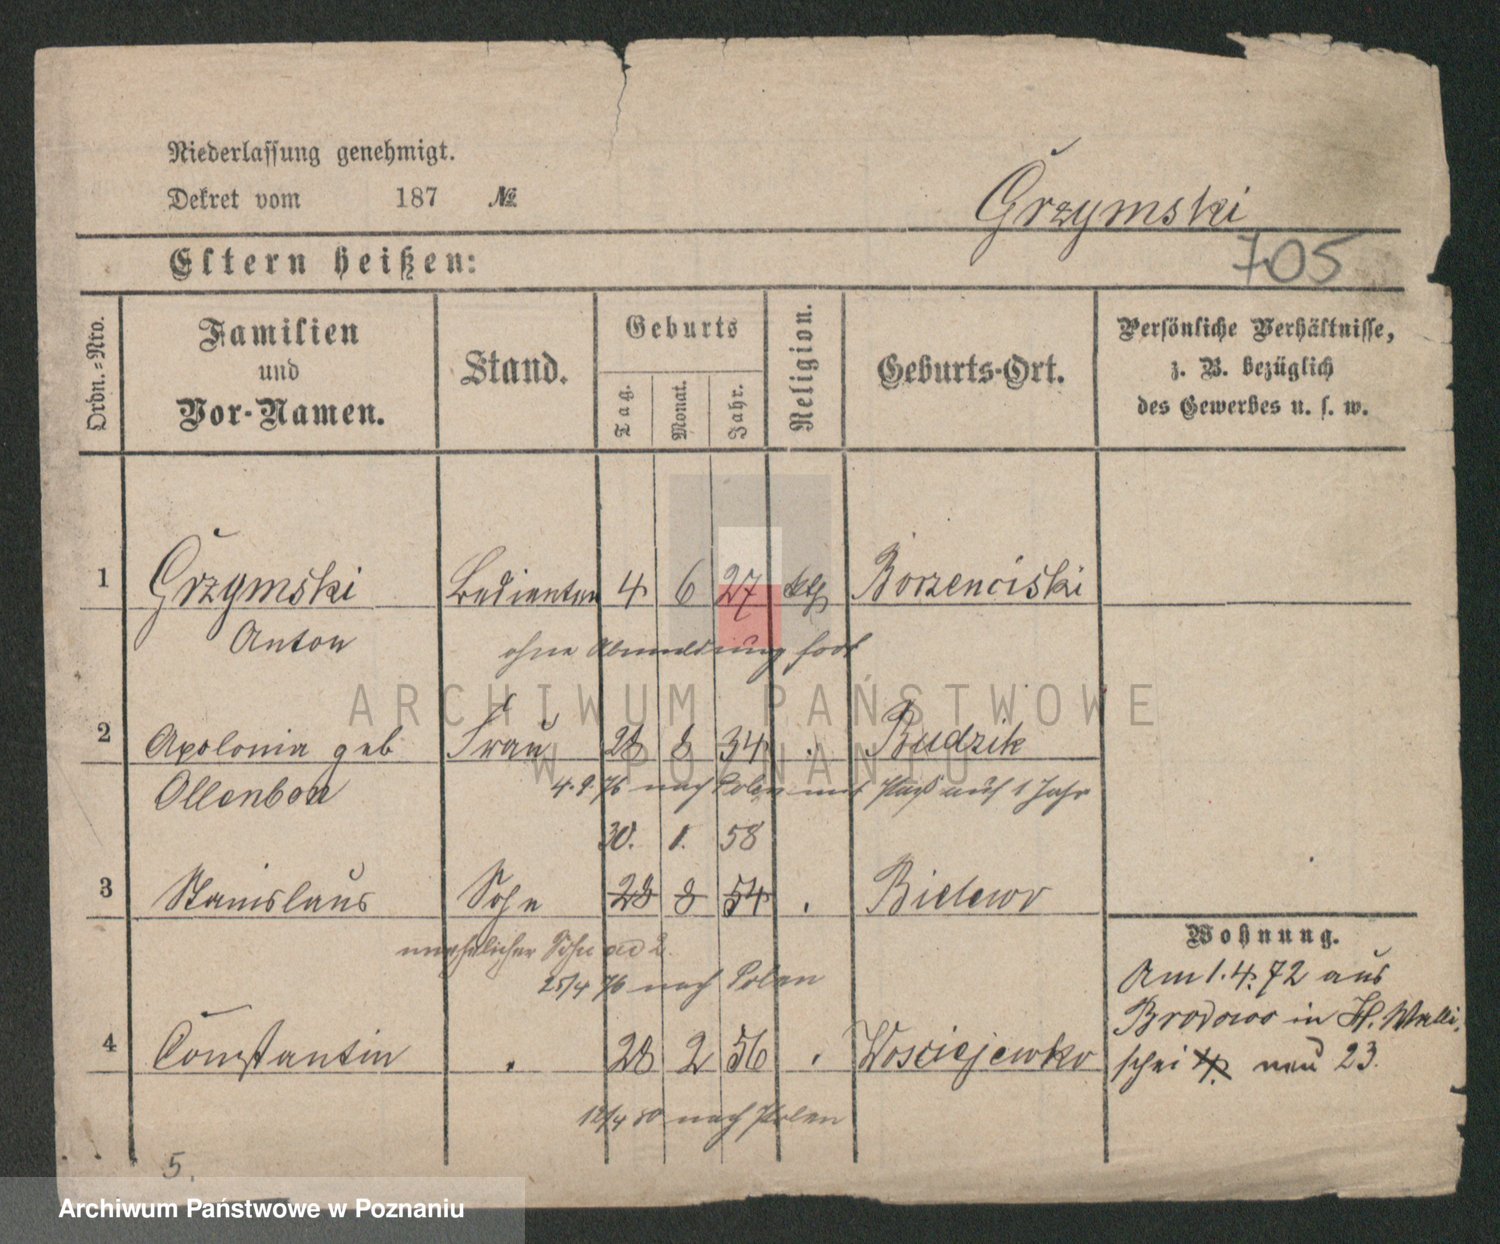 Niederlassung genehmigt.
Dekret vom 187 №
Grzymski
705
Eltern heißen:
Ordn.-Nro.
Familien
und
Vor-Namen.
Stand.
Geburts
Tag.
Monat.
Jahr.
Religion.
Geburts-Ort.
Persönliche Verhältnisse,
z. B. bezüglich
des Gewerbes u. s. w.
1 Grzymski Bedienten 4 6 27 ktl Borzenciski
Anton
ohne Abmeldung fort
ARCHIWUM PAŃSTWOWE
W POZNANIU
2 Apolonia geb Frau 28 8 34 . Budzik
4.9.76 nach Polen mit Paß auf 1 Jahr
30. 1. 58
3 Stanislaus Sohn 28 8 54 . Bielewo
unehelicher Sohn ad 2.
25/4 76 nach Polen
4 Constantin . 28 2 56 . Wosciejewko
12/4 80 nach Polen
5.
Wohnung.
Am 1.4.72 aus
Brodowo in H. Walli
schei 4. neu 23.
Archiwum Państwowe w Poznaniu